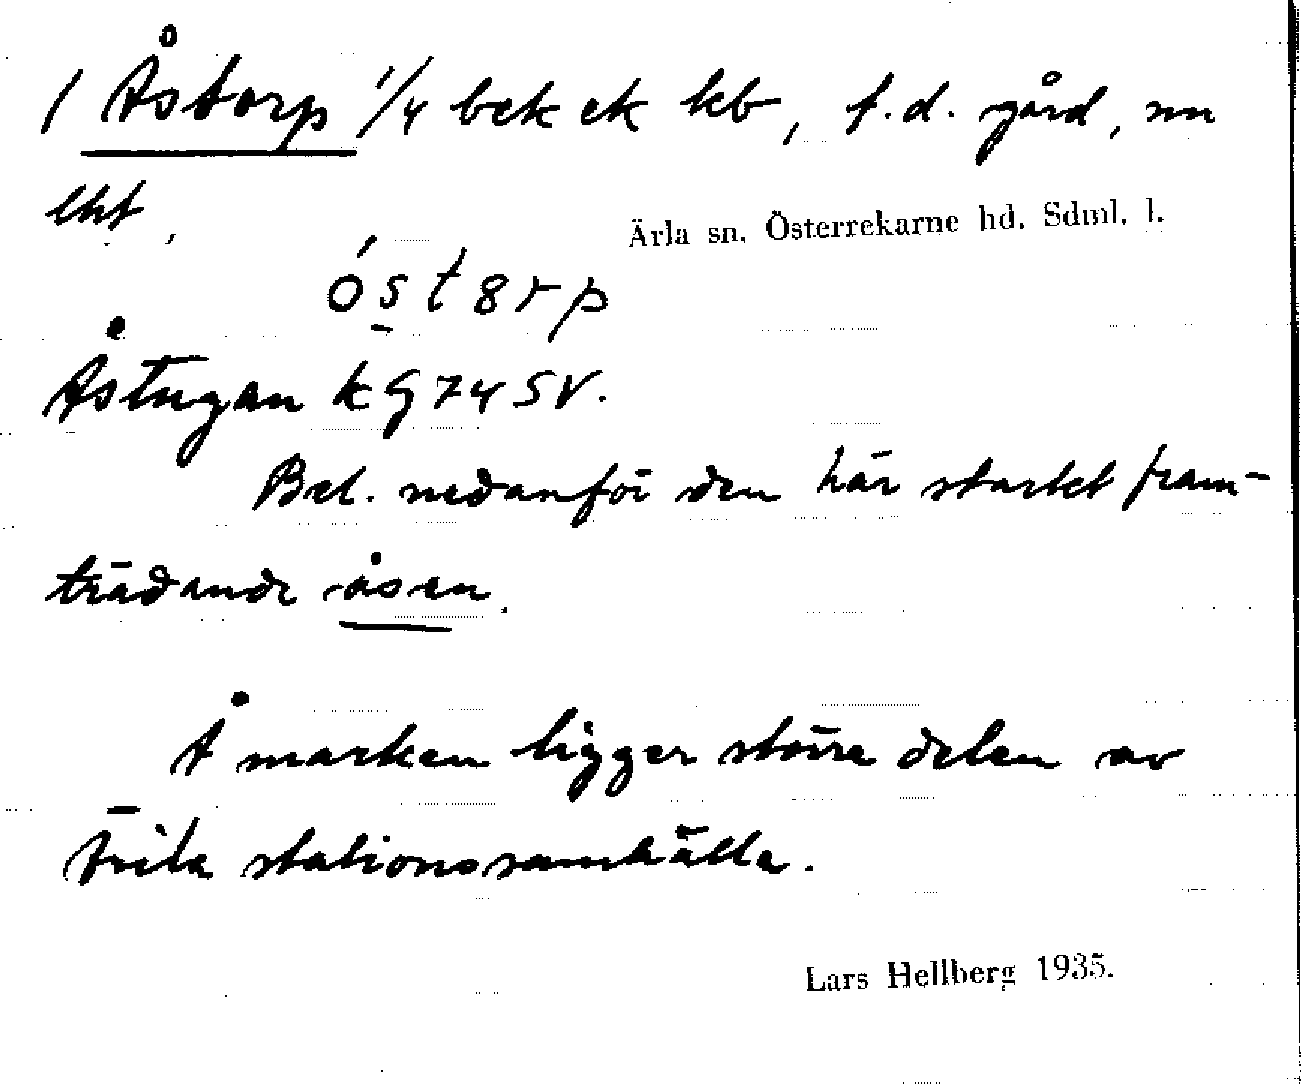 1 Åstorp 1/4 bek ek kb, f.d. gård, nu
lht,
Ärla sn. Österrekarne hd. Sdml. l.
óst8rp
Åstugan k G74 SV.
Bel. nedanför den här starkt fram-
trädande åsen.
Å marken ligger större delen av
Ärila stationssamhälle.
Lars Hellberg 1935.